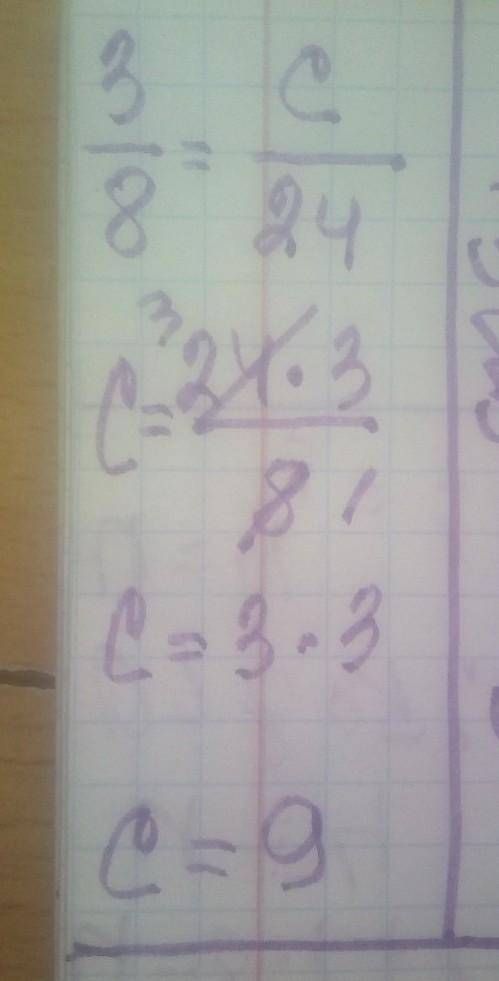 3/8 = C/24
C = ³24 · 3 / 8 1
C = 3 · 3
C = 9